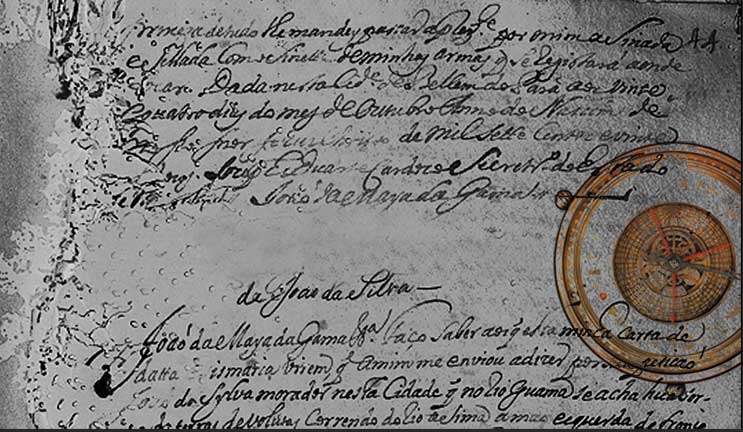 firmeza de tudo lhe mandey passar a prez.te por mim asinada 44
e sellada Com o Sinette de minhas armas q̃ se Registará aonde
tocar. Dada nesta Cid.e de Bellem do Pará aos vinte
e quatro dias do mes de Outubro Anno do Nascim.to de
de mil sette centos e vinte
Duarte Cardozo Secretr.o do Estado
João da Maya da Gama
de João da Silva
João da Maya da Gama &.a faço saber aos q̃ esta minha Carta de
datta e sismaria virem q̃ a mim me enviou a dizer por sua petição
João da Sylva morador nesta Cidade q̃ no Rio Guama se acha hua sor-
de terras devolutas Correndo do Rio asima a mão esquerda